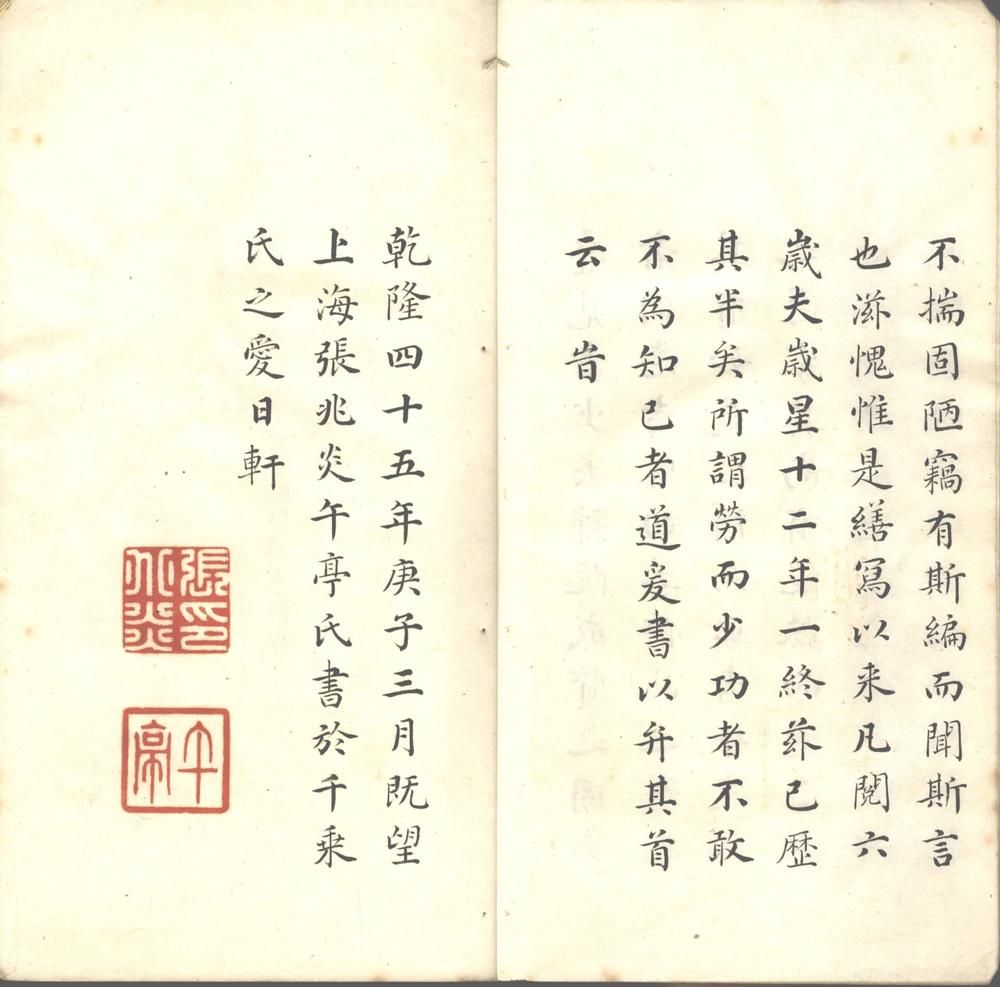 不揣固陋竊有斯編而聞斯言
也滋愧惟是繕寫以来凡閱六
歲夫歲星十二年一終茲已歷
其半矣所謂勞而少功者不敢
不為知已者道爰書以弁其首
云旹
乾隆四十五年庚子三月既望
上海張兆炎午亭氏書於千乘
氏之愛日軒
張印兆炎
午亭